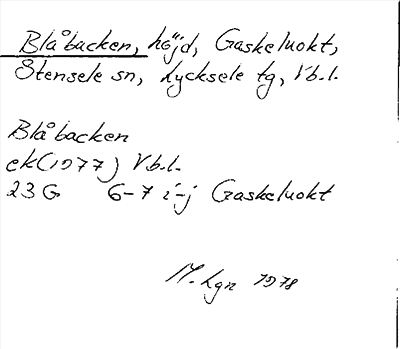 Blåbacken, höjd, Gaskeluokt,
Stensele sn, Lycksele tg, Vb.l.
Blåbacken
ek(1977) Vb.l.
23 G 6-7 i-j Gaskeluokt
M. Lgn 1978